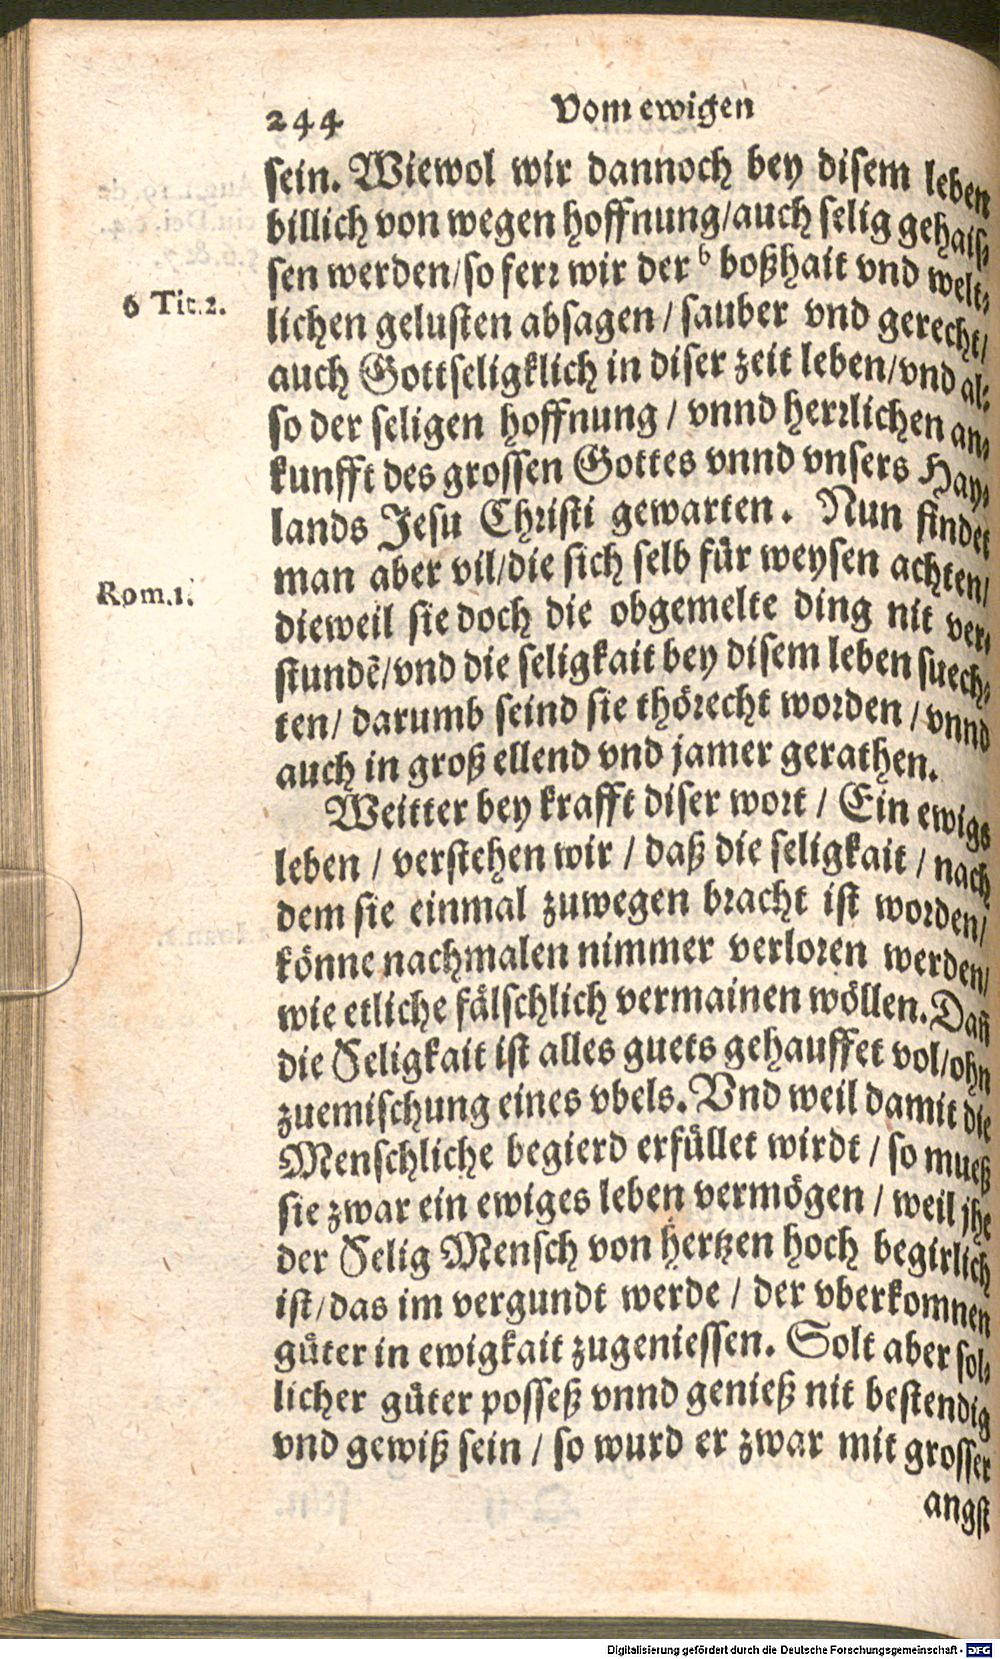 244
Vom ewigen
sein. Wiewol wir dannoch bey disem leben
billich von wegen hoffnung/auch selig gehais⸗
sen werden/so ferr wir der b boßhait vnd welt⸗
b Tit.2.
lichen gelusten absagen / sauber vnd gerecht/
auch Gottseligklich in diser zeit leben/vnd al⸗
so der seligen hoffnung / vnnd herrlichen an⸗
kunfft des grossen Gottes vnnd vnsers Hay⸗
lands Jesu Christi gewarten. Nun findet
man aber vil/die sich selb für weysen achten/
Rom.1.
dieweil sie doch die obgemelte ding nit ver⸗
stundẽ/vnd die seligkait bey disem leben suech⸗
ten/ darumb seind sie thörecht worden / vnnd
auch in groß ellend vnd jamer gerathen.
Weitter bey krafft diser wort / Ein ewigs
leben / verstehen wir / daß die seligkait / nach
dem sie einmal zuwegen bracht ist worden/
könne nachmalen nimmer verloren werden/
wie etliche fälschlich vermainen wöllen. Dañ
die Seligkait ist alles guets gehauffet vol/ohn
zuemischung eines vbels. Vnd weil damit die
Menschliche begierd erfüllet wirdt / so mueß
sie zwar ein ewiges leben vermögen / weil jhe
der Selig Mensch von hertzen hoch begirlich
ist/das im vergundt werde / der vberkomnen
güter in ewigkait zugeniessen. Solt aber sol⸗
licher güter posseß vnnd genieß nit bestendig
vnd gewiß sein / so wurd er zwar mit grosser
angst
Digitalisierung gefördert durch die Deutsche Forschungsgemeinschaft - DFG